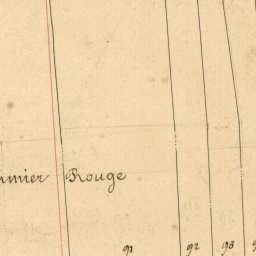 Rouge
91 92 93 9